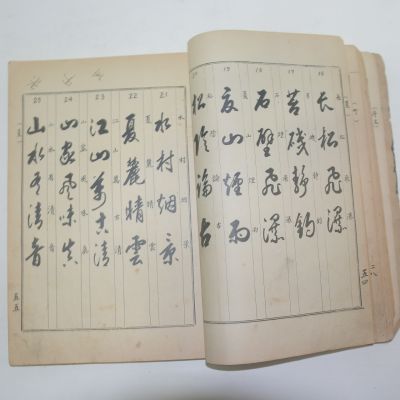 16
長松飛瀑
17
苔磯靜釣
18
石壁飛瀑
19
夏山煙雨
20
松陰論古
五四
21
水村烟景
22
夏麓晴雲
23
江山萬古清
24
山家風味真
25
山水有清音
(夏)
五五